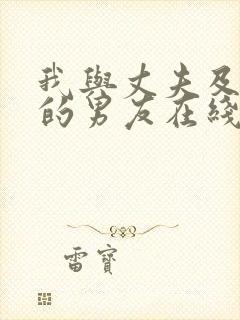 我與丈夫及
的男友在綫
雷寶